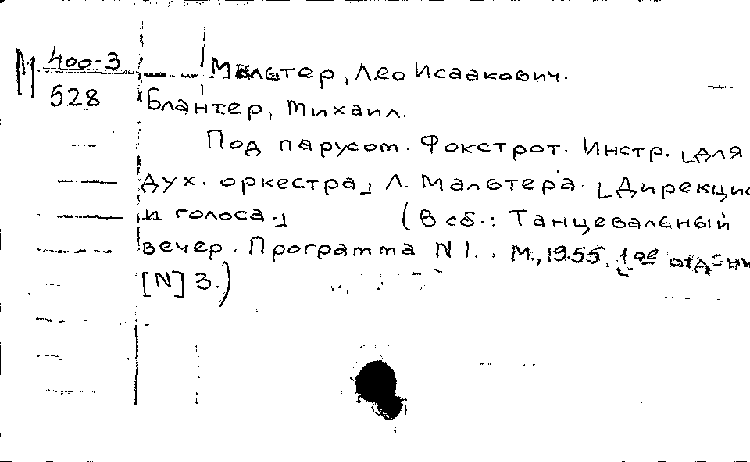 М 400-3
528
Мальтер, Лео Исаакович.
Блантер, Михаил.
Под парусом. Фокстрот. Инстр. [для
дух. оркестра] Л. Мальтера. [Дирекцио
и голоса.] (В сб.: Танцевальный
вечер. Программа N 1. М., 1955. 1ое
[N] 3.)